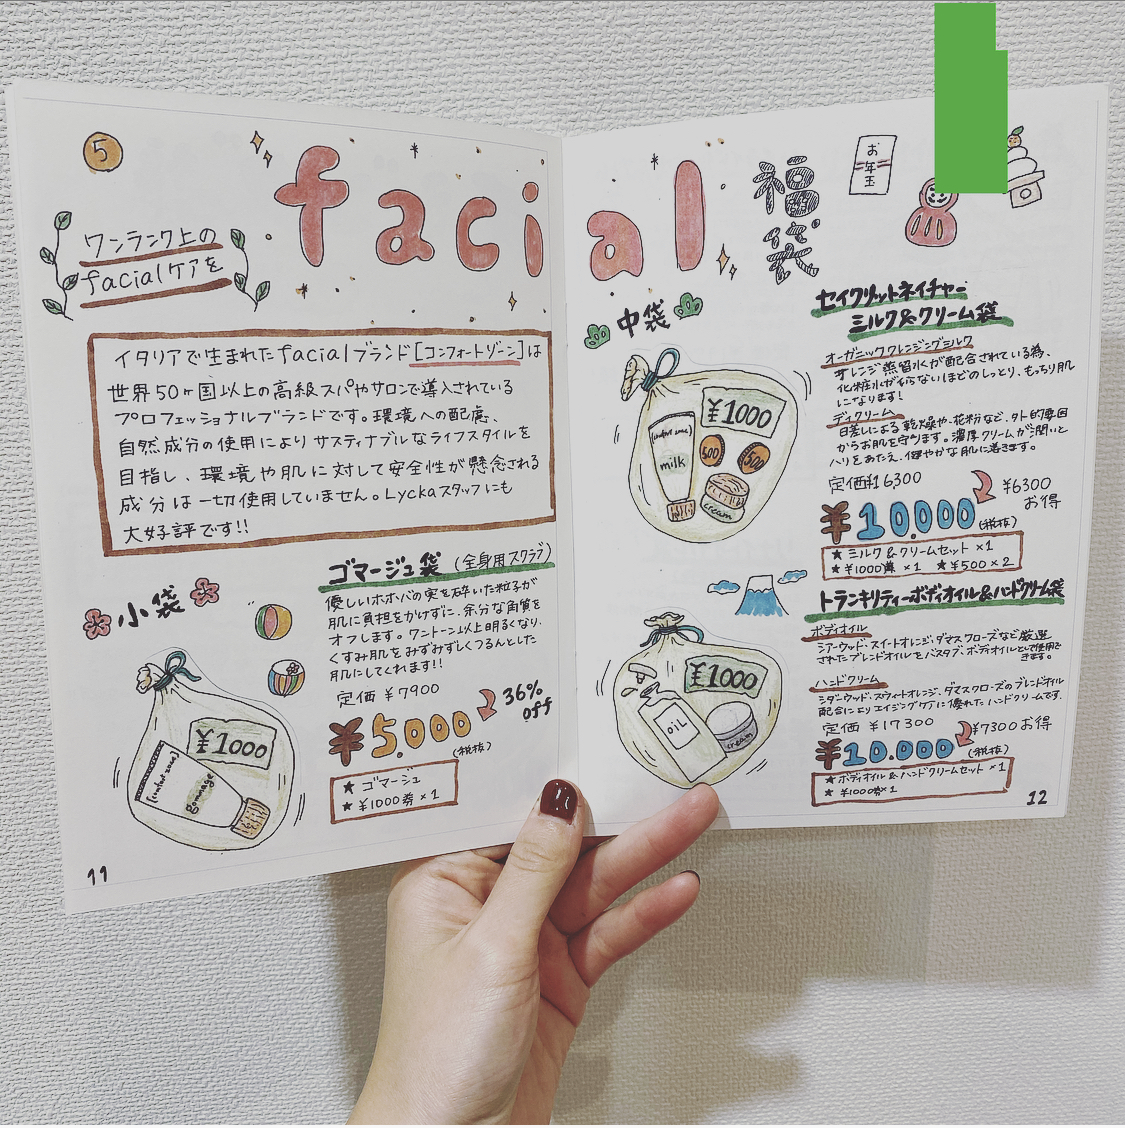 5
facial
ワンランク上の
facialケアを
イタリアで生まれたfacialブランド[コンフォートゾーン]は
世界50ヶ国以上の高級スパやサロンで導入されている
プロフェッショナルブランドです。環境への配慮、
自然成分の使用によりサスティナブルなライフスタイルを
目指し、環境や肌に対して安全性が懸念される
成分は一切使用していません。Lyckaスタッフにも
大好評です!!
小袋
¥1000
[comfort zone]
gommage
ゴマージュ袋(全身用スクラブ)
優しいホホバの実を砕いた粒子が
肌に負担をかけずに、余分な角質を
オフします。ワントーン以上明るくなり、
くすみ肌をみずみずしくつるんとした
肌にしてくれます!!
定価 ¥7900
36%
off
¥5.000
(税抜)
★ ゴマージュ
★ ¥1000券×1
11
福袋
お年玉
中袋
¥1000
500
500
[comfort zone]
milk
cream
セイクリットネイチャー
ミルク&クリーム袋
オーガニッククレンジングミルク
オレンジ蒸留水が配合されている為、
化粧水がいらないほどのしっとり、もっちり肌
になります!
ディクリーム
日差しによる乾燥や、花粉など、外的要因
からお肌を守ります。濃厚クリームが潤いと
ハリをあたえ、健やかな肌に導きます。
定価¥16300
¥6300
お得
¥10.000
(税抜)
★ ミルク&クリームセット ×1
★ ¥1000券 ×1 ★ ¥500×2
¥1000
oil
cream
トランキリティーボディオイル&ハンドクリーム袋
ボディオイル
シダーウッド・スイートオレンジ、ダマスクローズなど厳選
されたブレンドオイルをバスタブ、ボディオイルとして使用で
きます。
ハンドクリーム
シダーウッド、スウィートオレンジ、ダマスクローズのブレンドオイル
配合によりエイジングケアに優れたハンドクリームです。
定価 ¥17300
¥7300お得
¥10.000
(税抜)
★ ボディオイル&ハンドクリームセット ×1
★ ¥1000券×1
12